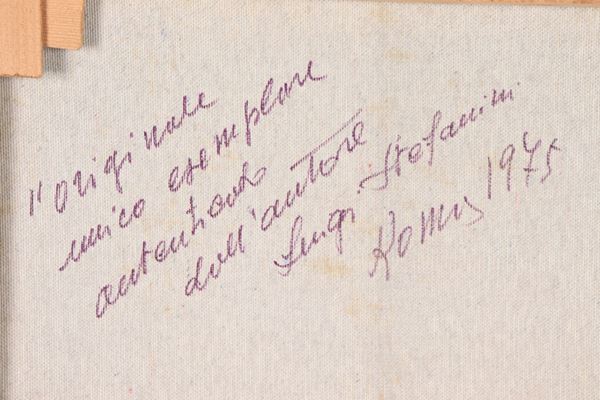 "originale
unico esemplare
autenticato
dall'autore
Luigi Stefanini
Roma 1975